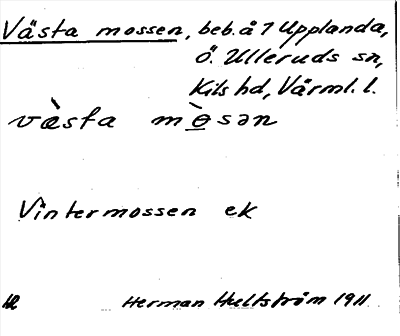 Västa mossen, beb. å 7 Upplanda,
Ö. Ulleruds sn,
Kils hd, Värml. l.
væ̀sta mɵ̀sən
Vintermossen ek
Herman Hultström 1911